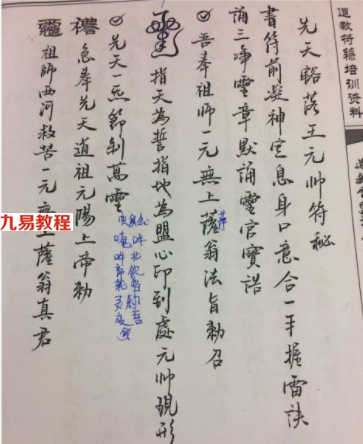 道教符籙培训资料
先天豁落王元帅符秘
書符前凝神定息身口意合一手握雷诀
诵三净靈章默诵靈官寳诰
吾奉祖师一元無上薩翁法旨勅召
指天為誓指地為盟心印到處元帅現形
先天一炁節制萬靈
急奉先天道祖元陽上帝勅
祖師西河救苦一元無上薩翁真君
九易教程
www.